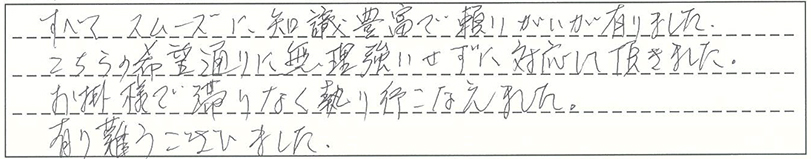 すべて スムーズに、知識豊富で頼りがいが有りました.
こちらの希望通りに無理強いせずに対応して頂きました。
お掛様で滞りなく執り行こなえました。
有り難うございました.